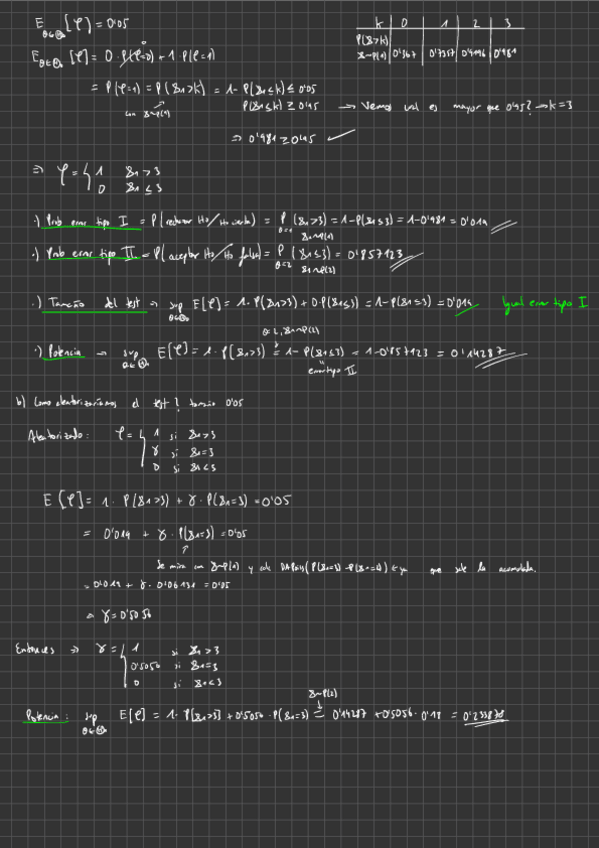 E_{θ∈Θ₀}[φ] = 0'05
k 0 1 2 3
P(X₁>k)
X~P(1) 0'367 0'7357 0'9196 0'981
E_{θ∈Θ₀}[φ] = 0·P(φ=0) + 1·P(φ=1)
= P(φ=1) = P(X₁>k) = 1-P(X₁≤k) ≤ 0'05
con X~P(1)
P(X₁≤k) ≥ 0'95 → Vemos cual es mayor que 0'95? → k=3
⇒ 0'981 ≥ 0'95 ✓
⇒ φ = { 1 X₁ > 3
0 X₁ ≤ 3
·) Prob error tipo I = P(rechazar H₀/H₀ cierta) = P_{θ=1}(X₁>3) = 1-P(X₁≤3) = 1-0'981 = 0'019
X₁~P(1)
·) Prob error tipo II = P(aceptar H₀/H₀ falsa) = P_{θ=2}(X₁≤3) = 0'857123
X₁~P(2)
·) Tamaño del test → sup_{θ∈Θ₀} E[φ] = 1·P(X₁>3) + 0·P(X₁≤3) = 1-P(X₁≤3) = 0'019 Igual error tipo I
θ=2, X₁~P(2)
·) Potencia → sup_{θ∈Θ₁} E[φ] = 1·P(X₁>3) = 1-P(X₁≤3) = 1-0'857123 = 0'14287
error tipo II
b) Como aleatorizaríamos el test? tamaño 0'05
Aleatorizado: φ = { 1 si X₁>3
γ si X₁=3
0 si X₁<3
E[φ] = 1·P(X₁>3) + γ·P(X₁=3) = 0'05
= 0'019 + γ·P(X₁=3) = 0'05
Se mira con X~P(1) y (P(X₁=3) ya que sale la acumulada.
= 0'019 + γ·0'06131 = 0'05
⇒ γ = 0'5056
Entonces ⇒ γ = { 1 si X₁>3
0'5056 si X₁=3
0 si X₁<3
X~P(2)
Potencia: sup_{θ∈Θ₁} E[φ] = 1·P[X₁>3] + 0'5056·P(X₁=3) = 0'14287 + 0'5056·0'18 = 0'233878